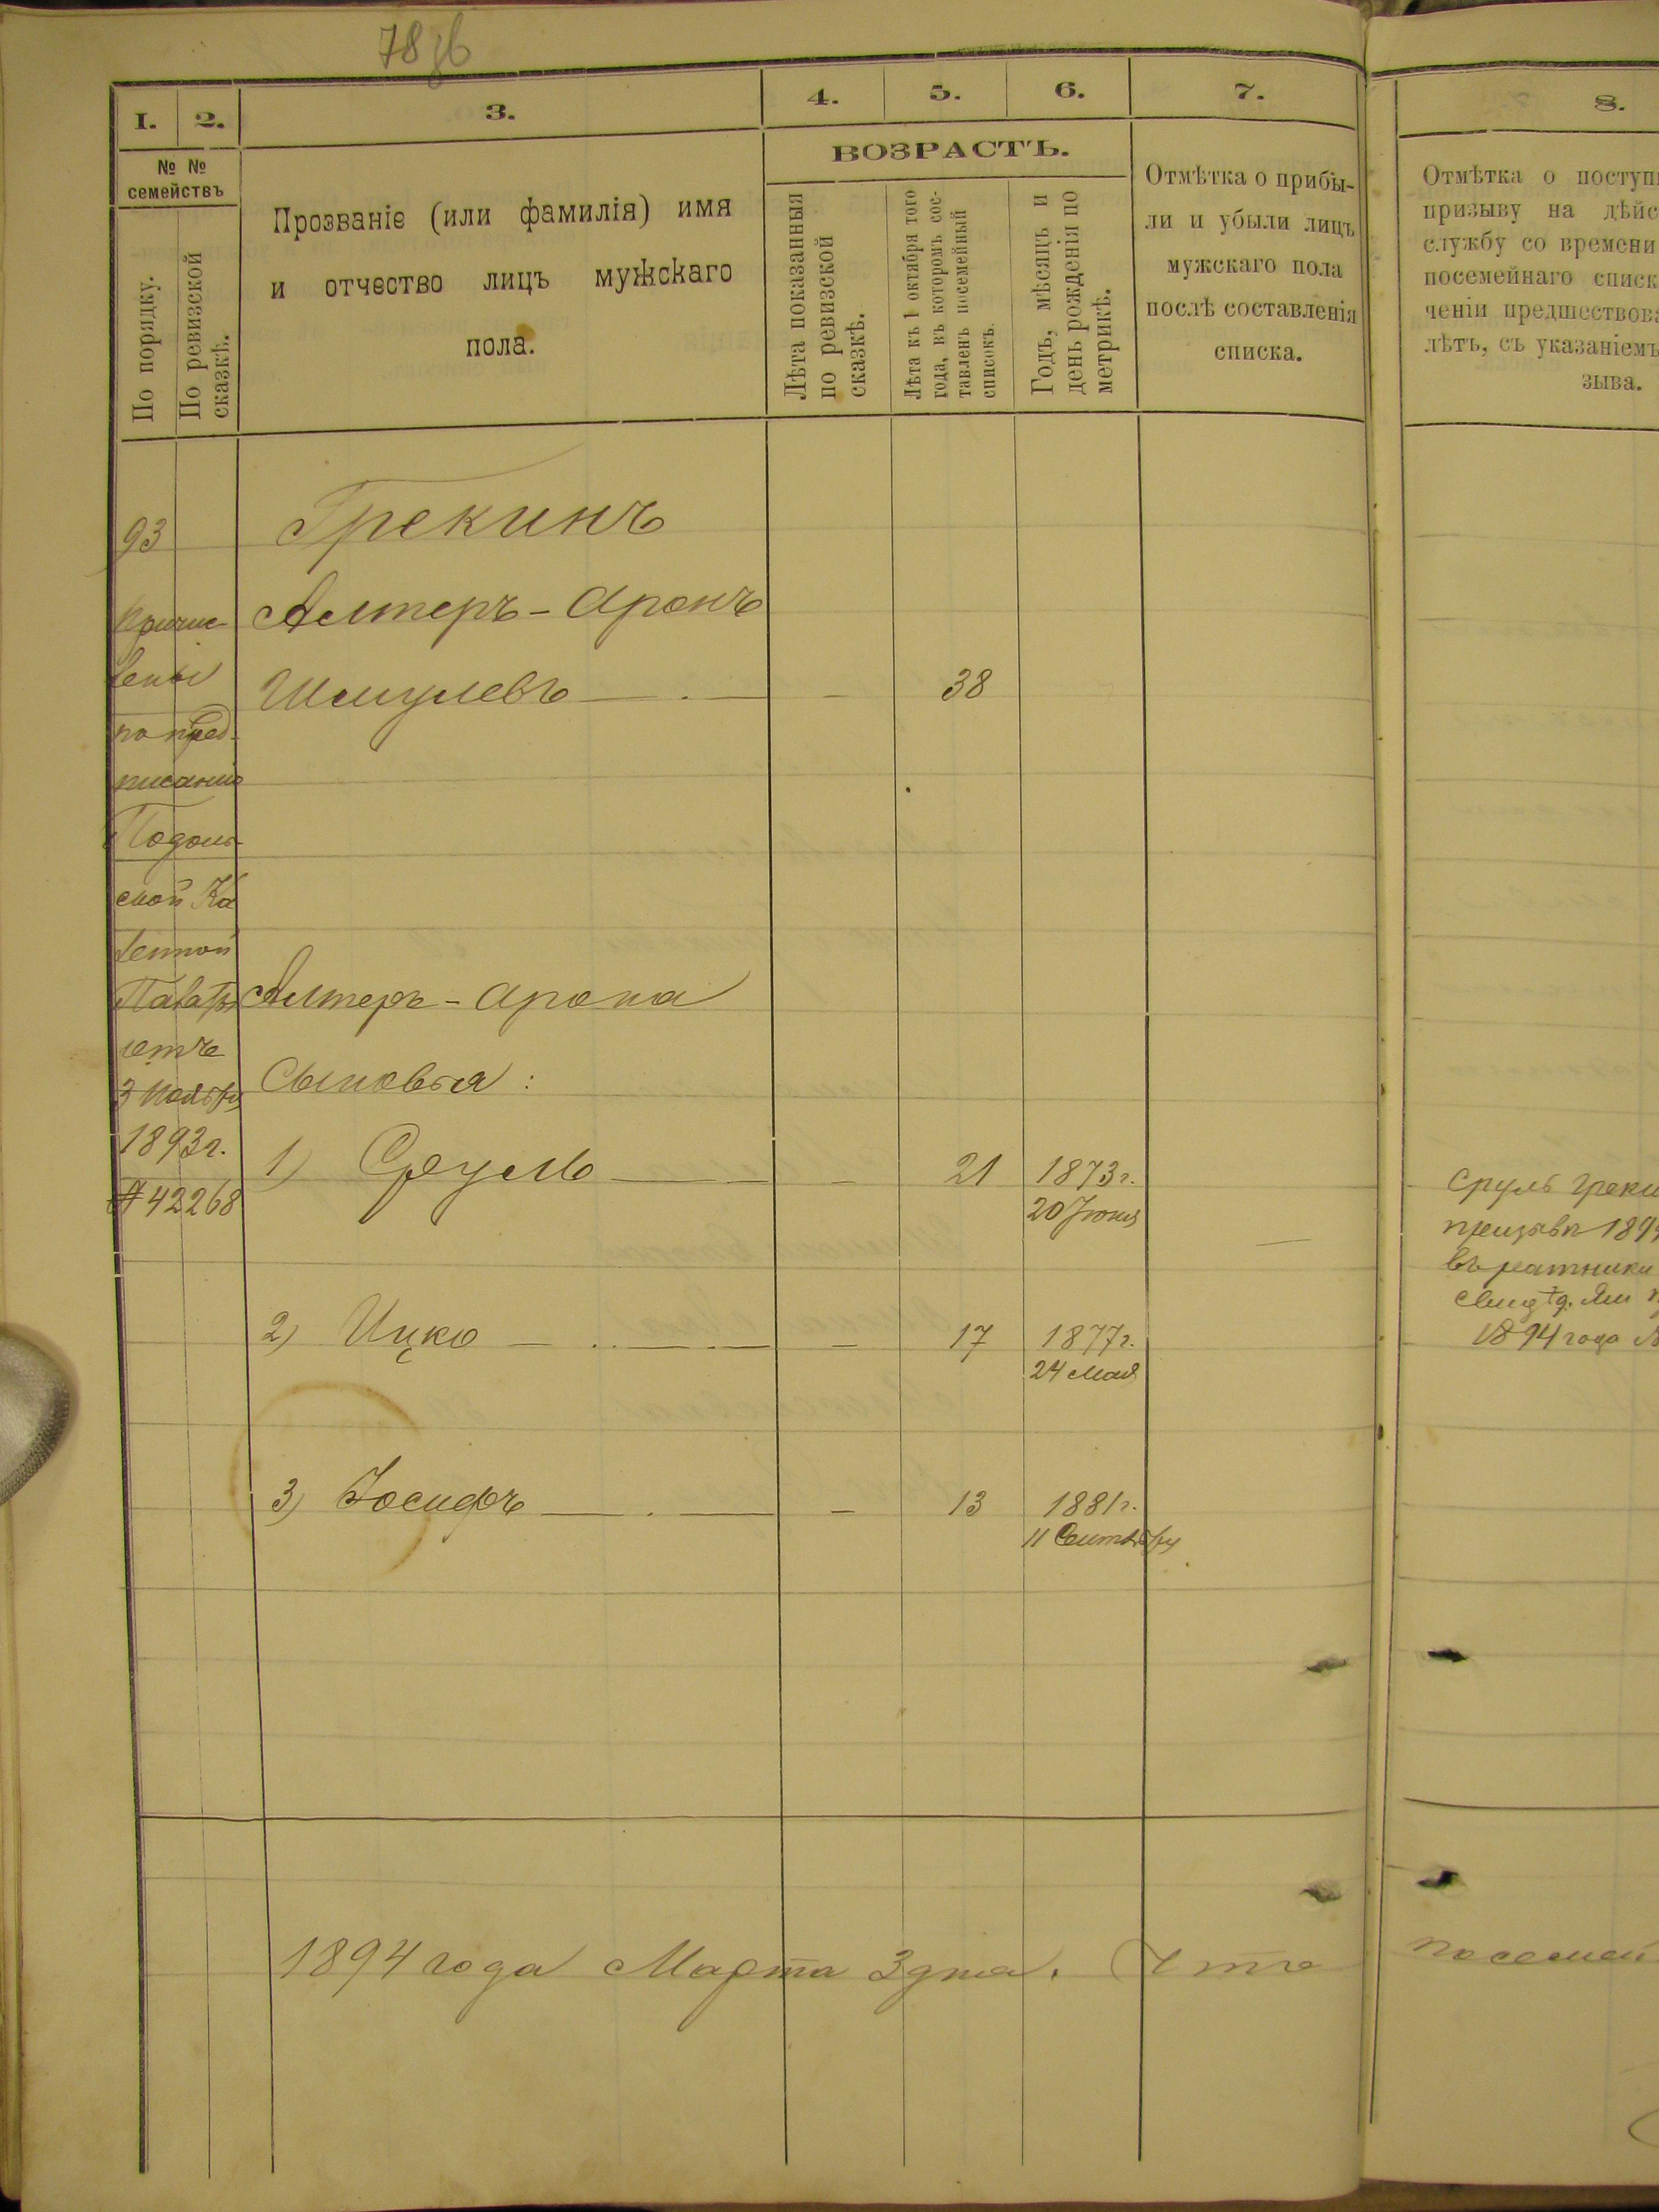 78 зв
1. 2. 3. 4. 5. 6. 7. 8.
№ №
семействъ
По порядку.
По ревизской
сказкѣ.
Прозваніе (или фамилія) имя
и отчество лицъ мужскаго
пола.
ВОЗРАСТЪ.
Лѣта показанныя
по ревизской
сказкѣ.
Лѣта къ 1 октября того
года, въ которомъ сос-
тавленъ посемейный
списокъ.
Годъ, мѣсяцъ и
день рожденія по
метрикѣ.
Отмѣтка о прибы-
ли и убыли лицъ
мужскаго пола
послѣ составленія
списка.
Отмѣтка о поступ
призыву на дѣйс
службу со времени
посемейнаго списк
ченіи предшествов
лѣтъ, съ указаніемъ
зыва.
93
Причис-
лены
по пред-
писанію
Подоль-
ской Ка
зенной
Палаты
отъ
3 Ноября
1893 г.
№ 42268
Грекинъ
Алтеръ-Аронъ
Шмулевъ — . — — 38
Алтеръ-Арона
Сыновья:
1) Сруль — — 21 1873 г.
20 Іюня
2) Ицко — . . — . — — 17 1877 г.
24 Мая
3) Іосифъ — . — — 13 1881 г.
11 Сентября
Сруль Греки
призыва 189
въ ратники
1894 года
1894 года Марта 3 дня. Что посемей